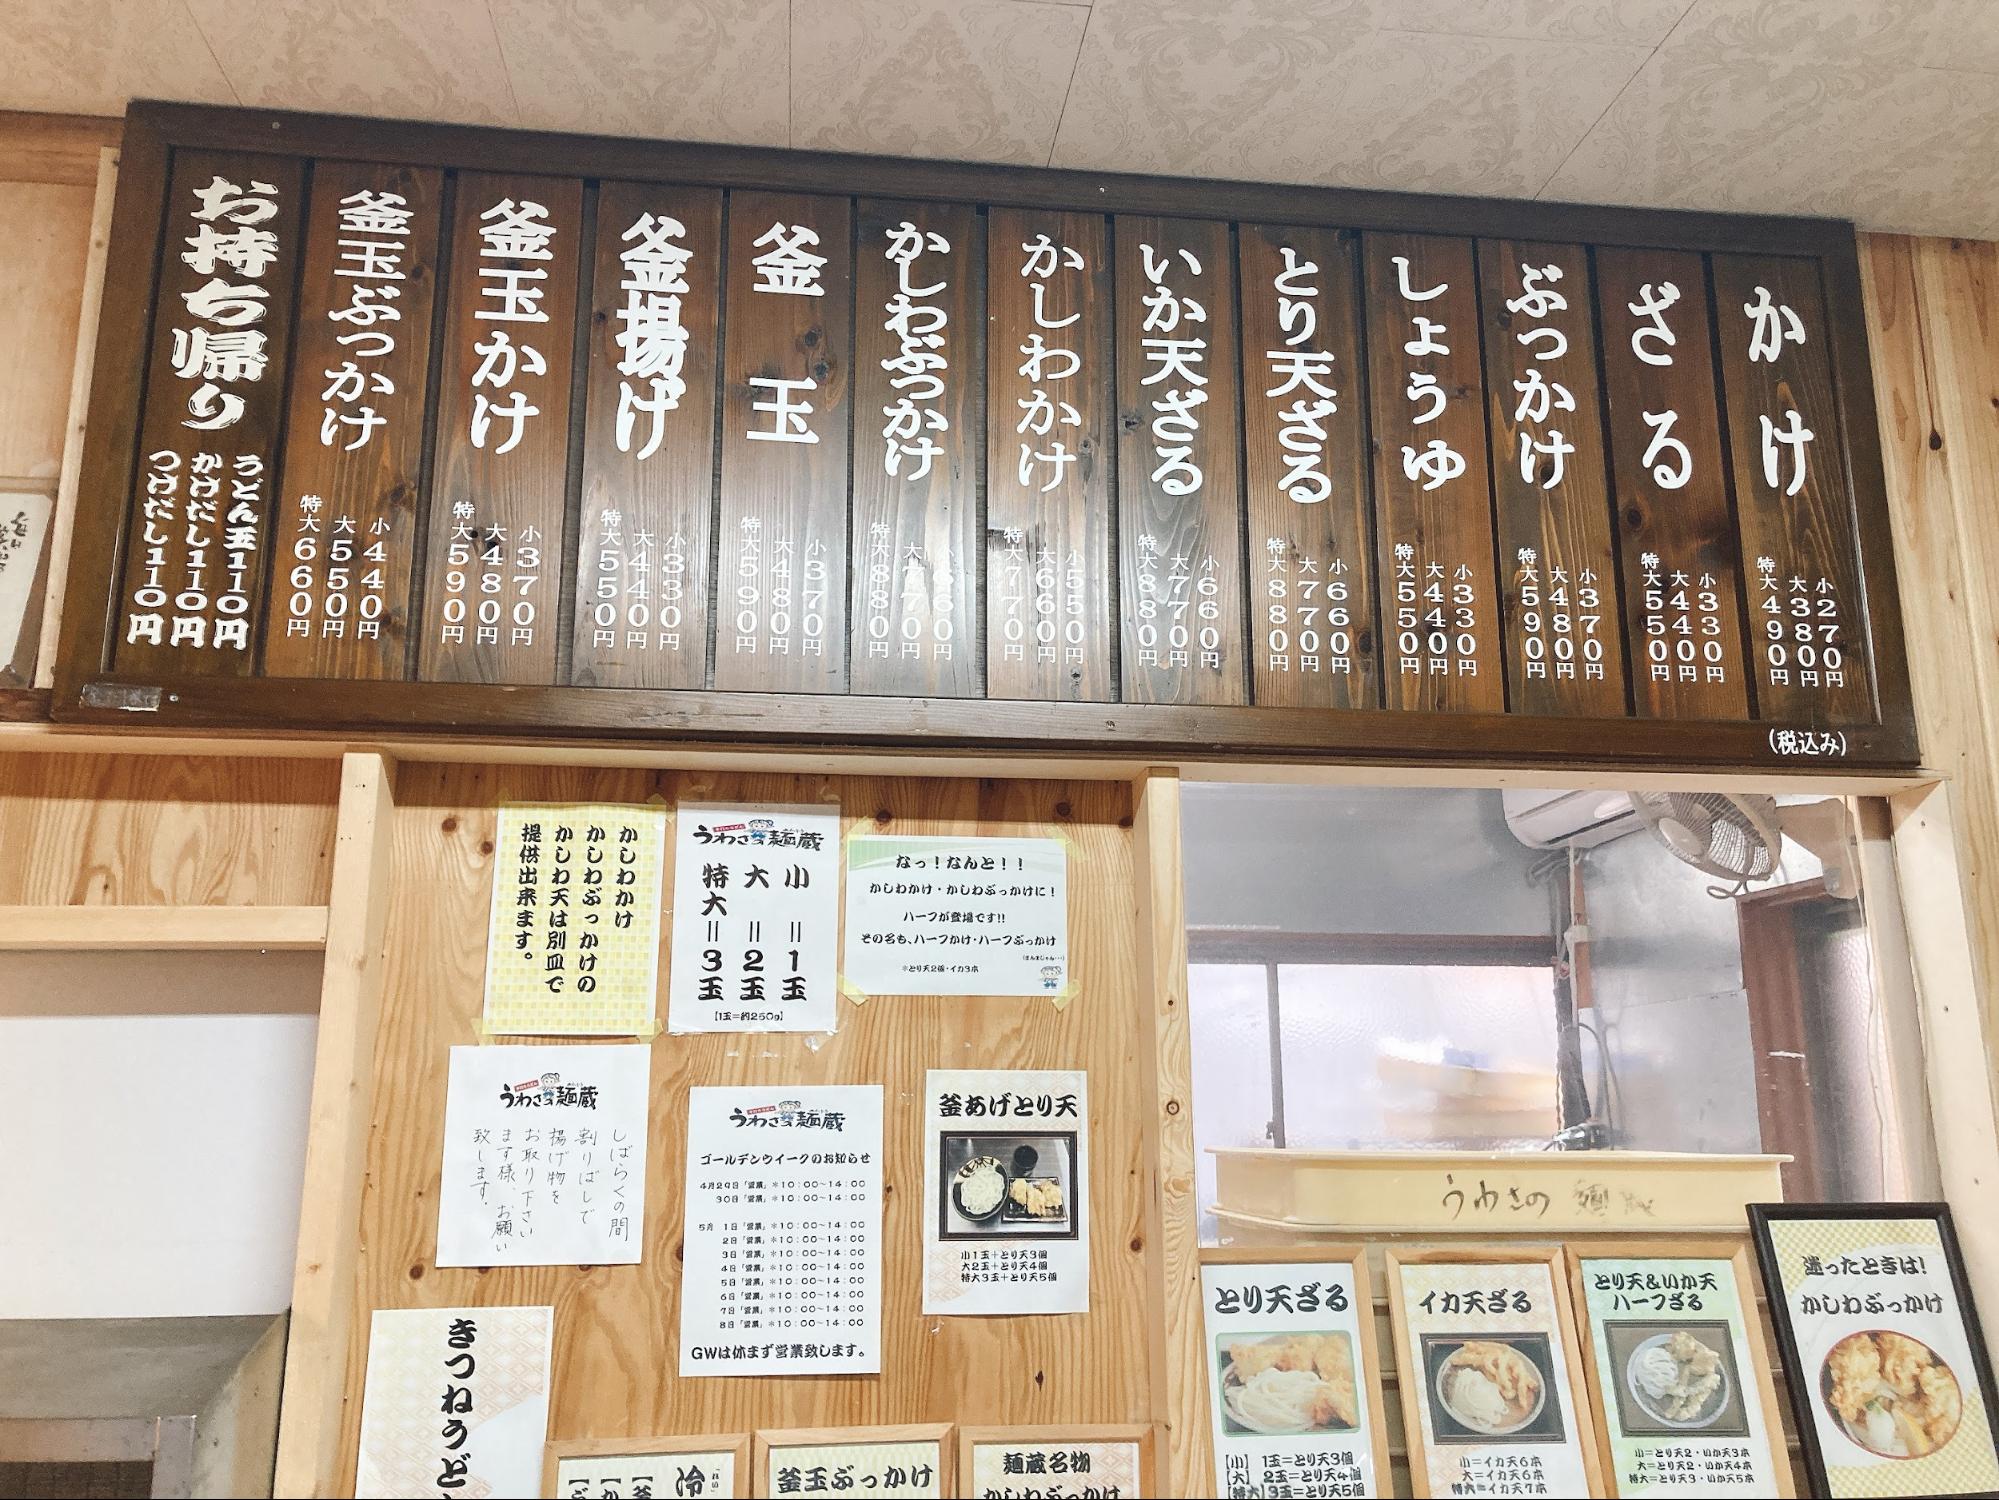 かけ
小270円
大380円
特大490円
ざる
小330円
大440円
特大550円
ぶっかけ
小370円
大480円
特大590円
しょうゆ
小330円
大440円
特大550円
とり天ざる
小660円
大770円
特大880円
いか天ざる
小660円
大770円
特大880円
かしわかけ
小550円
大660円
特大770円
かしわぶっかけ
小660円
大770円
特大880円
釜玉
小370円
大480円
特大590円
釜揚げ
小330円
大440円
特大550円
釜玉かけ
小370円
大480円
特大590円
釜玉ぶっかけ
小440円
大550円
特大660円
お持ち帰り
うどん玉110円
かけだし110円
つけだし110円
(税込み)
かしわかけ
かしわぶっかけの
かしわ天は別皿で
提供出来ます。
うわさの麺蔵
小=1玉
大=2玉
特大=3玉
【1玉=約250g】
なっ!なんと!!
かしわかけ・かしわぶっかけに!
ハーフが登場です!!
その名も、ハーフかけ・ハーフぶっかけ
(まんまじゃん…)
*とり天2個・イカ3本
うわさの麺蔵
しばらくの間
割りばしで
揚げ物を
お取り下さい
ます様、お願い
致します。
うわさの麺蔵
ゴールデンウイークのお知らせ
4月29日「営業」*10:00~14:00
30日「営業」*10:00~14:00
5月 1日「営業」*10:00~14:00
2日「営業」*10:00~14:00
3日「営業」*10:00~14:00
4日「営業」*10:00~14:00
5日「営業」*10:00~14:00
6日「営業」*10:00~14:00
7日「営業」*10:00~14:00
8日「営業」*10:00~14:00
GWは休まず営業致します。
釜あげとり天
小1玉+とり天3個
大2玉+とり天4個
特大3玉+とり天5個
うわさの麺
とり天ざる
【小】 1玉=とり天3個
【大】 2玉=とり天4個
【特大】3玉=とり天5個
イカ天ざる
小=イカ天6本
大=イカ天6本
特大=イカ天7本
とり天&いか天
ハーフざる
小=とり天2・いか天3本
大=とり天2・いか天4本
特大=とり天3・いか天5本
迷ったときは!
かしわぶっかけ
きつねうど
冷
釜玉ぶっかけ
麺蔵名物
かしわぶっかけ